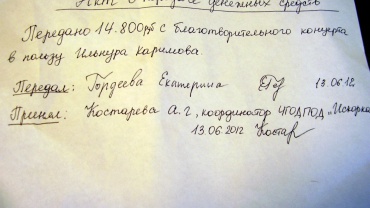 Акт передачи денежных средств
Передано 14.800руб с благотворительного концерта
в пользу Ильнура Каримова.
Передал: Гордеева Екатерина 13.06.12
Принял: Костарева А.Г, координатор ЧГОДПОД "Искорка
13.06.2012 Костар